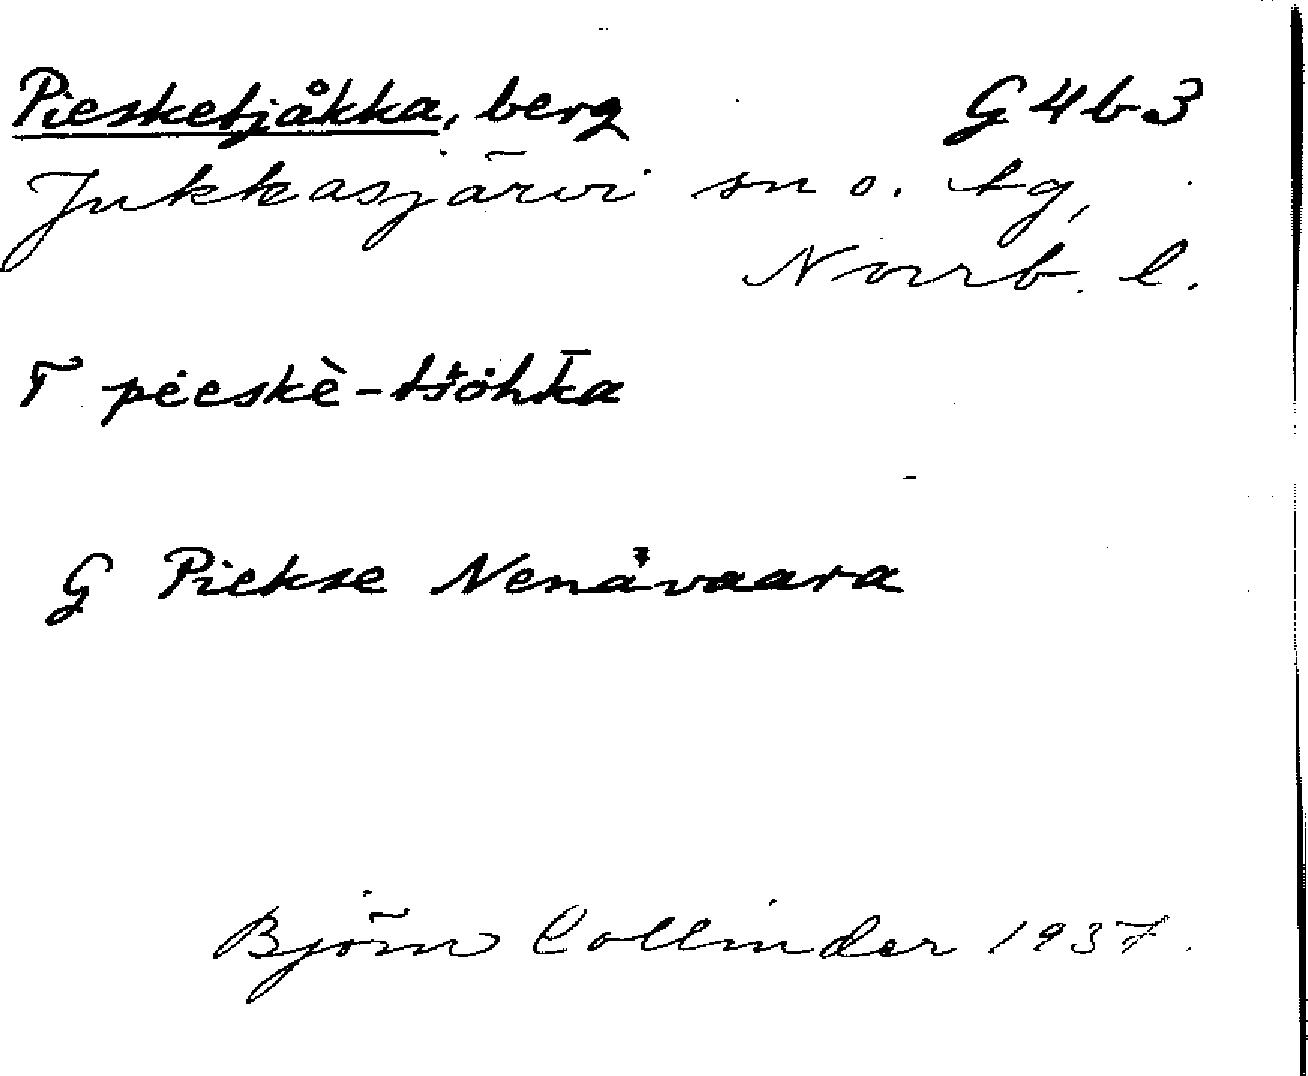 Piesketjåkka, berg G4b3
Jukkasjärvi sn o. tg,
Norrb. l.
T pėeskè-tšȯhk̄a
G Piekse Nenävaara
Björn Collinder 1937.